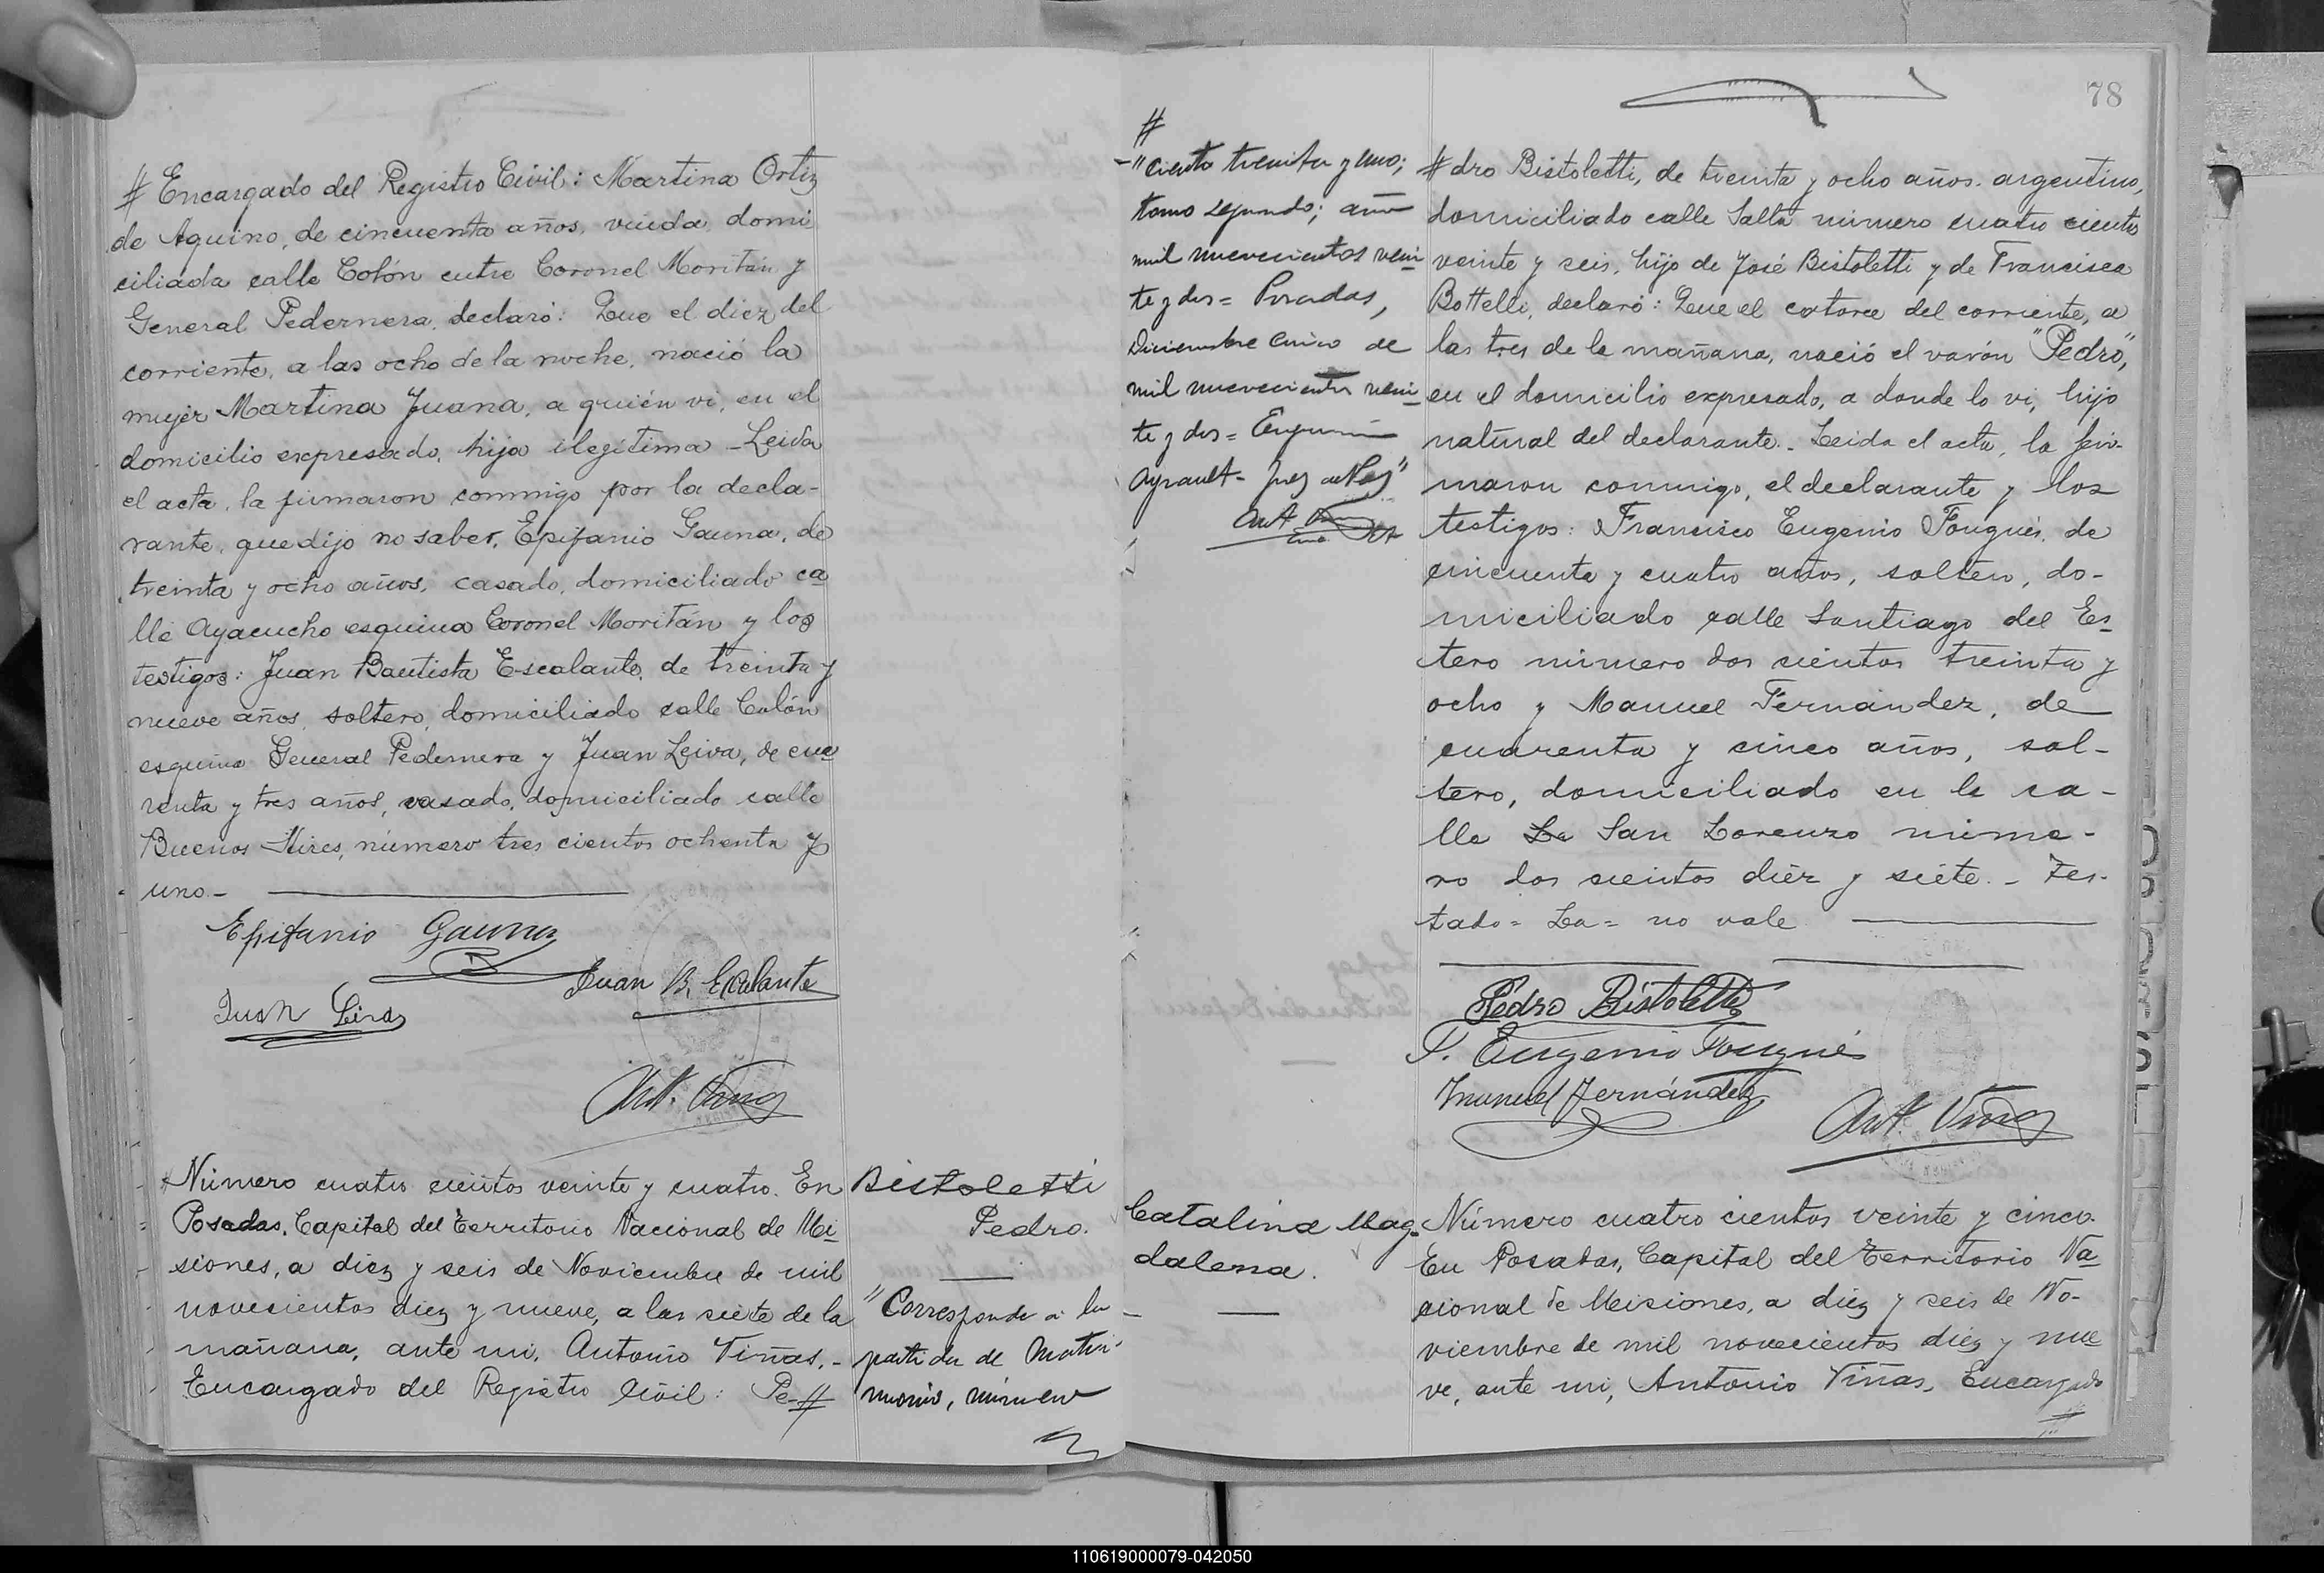 # Encargado del Registro Civil: Martina Ortiz
de Aquino, de cincuenta años, viuda, domi
ciliada calle Colón entre Coronel Moritán y
General Pedernera, declaró: Que el diez del
corriente, a las ocho de la noche, nació la
mujer Martina Juana, a quién vi, en el
domicilio expresado, hija ilegítima - Leida
el acta, la firmaron conmigo por la decla-
rante, que dijo no saber, Epifanio Gauna, de
treinta y ocho años, casado, domiciliado ca
lle Ayacucho esquina Coronel Moritán y los
testigos: Juan Bautista Escalante, de treinta y
nueve años, soltero, domiciliado calle Colón
esquina General Pedernera y Juan Leiva, de cua
renta y tres años, casado, domiciliado calle
Buenos Aires, número tres cientos ochenta y
uno.-
Epifanio Gauna
Juan B. Escalante
Juan Leiva
Ant. Viñas
Número cuatro cientos veinte y cuatro. En
Posadas, Capital del Territorio Nacional de Mi
siones, a diez y seis de Noviembre de mil
novecientos diez y nueve, a las siete de la
mañana, ante mi, Antonio Viñas, -
Encargado del Registro Civil: Pe-#
Bistoletti
Pedro.
"Corresponde a la
partida de Matri-
monio, número
78
#
-"ciento treinta y uno;
tomo segundo; año
mil nuevecientos vein
te y dos = Posadas,
Diciembre cinco de
mil nuevecientos vein
te y dos =
Ayrault - Juez de Paz"
Ant. Viñas
# dro Bistoletti, de treinta y ocho años, argentino,
domiciliado calle Salta número cuatro ciento
veinte y seis, hijo de José Bistoletti y de Francisca
Bottelli, declaró: Que el catorce del corriente, a
las tres de la mañana, nació el varón "Pedro",
en el domicilio expresado, a donde lo vi, hijo
natural del declarante.- Leida el acta, la fir-
maron conmigo, el declarante y los
testigos: Francisco Eugenio Fougués, de
cincuenta y cuatro años, soltero, do-
miciliado calle Santiago del Es-
tero número dos cientos treinta y
ocho y Manuel Fernández, de
cuarenta y cinco años, sol-
tero, domiciliado en la ca-
lle La San Lorenzo núme-
ro dos cientos diéz y siete. - Tes-
tado = La = no vale
Pedro Bistoletti
F. Eugenio Fougués
Manuel Fernández
Ant. Viñas
Catalina Mag-
dalena.
Número cuatro cientos veinte y cinco.
En Posadas, Capital del Territorio Na
cional de Misiones, a diez y seis de No-
viembre de mil novecientos diez y nue
ve, ante mi, Antonio Viñas, Encargado
110619000079-042050